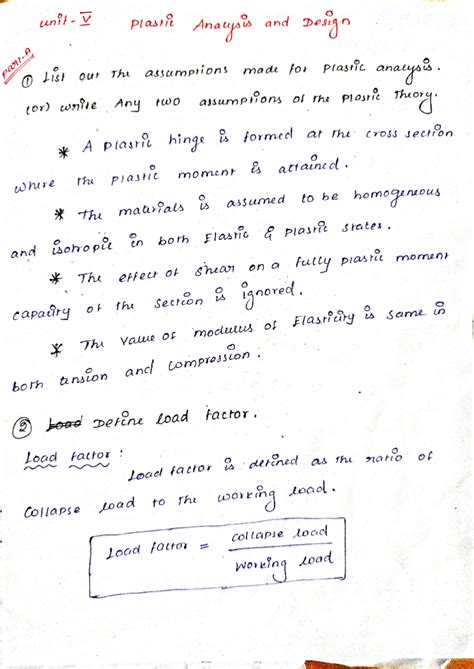 unit-V Plastic Analysis and Design
Part-A
① List out The assumptions made for Plastic analysis.
(or) write Any two assumptions of the Plastic Theory.
* A Plastic hinge is formed at the cross section
where the plastic moment is attained.
* The materials is assumed to be homogeneous
and isotropic in both Elastic & plastic states.
* The effect of shear on a fully plastic moment
capacity of the section is ignored.
* The value of modulus of Elasticity is same in
both tension and compression.
② Load Define load factor.
Load factor:
Load factor is defined as the ratio of
Collapse load to the working load.
Load factor = collapse load
working load